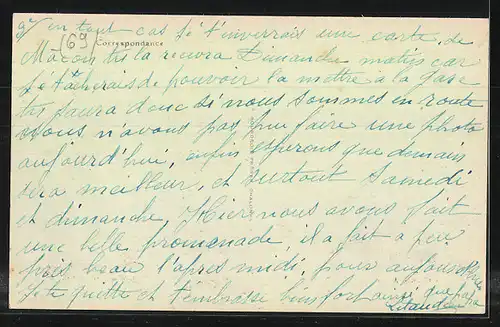 en tout cas je t'enverrais une carte de
(69)
Correspondance
Macon tu la recevra Dimanche matin car
je tacherais de pouvoir la mettre a la gare
tu saura donc si nous sommes en route
nous n'avons pas pu faire une photo
aujourd'hui, enfin esperons que demain
sera meilleur, et surtout Samedi
et dimanche, Hier nous avons fait
une belle promenade, il a fait a peu
près beau l'apres midi, pour aujourd'hui
Je te quitte et t'embrasse bien fort ainsi que papa